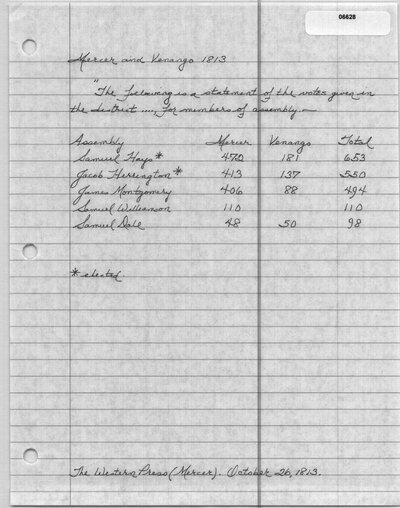 06628
Mercer and Venango 1813
"The following is a statement of the votes given in
the district ...., for members of assembly.—
Assembly Mercer Venango Total
Samuel Hays* 472 181 653
Jacob Herrington* 413 137 550
James Montgomery 406 88 494
Samuel Williamson 110 110
Samuel Dale 48 50 98
* elected.
The Western Press (Mercer). October 26, 1813.